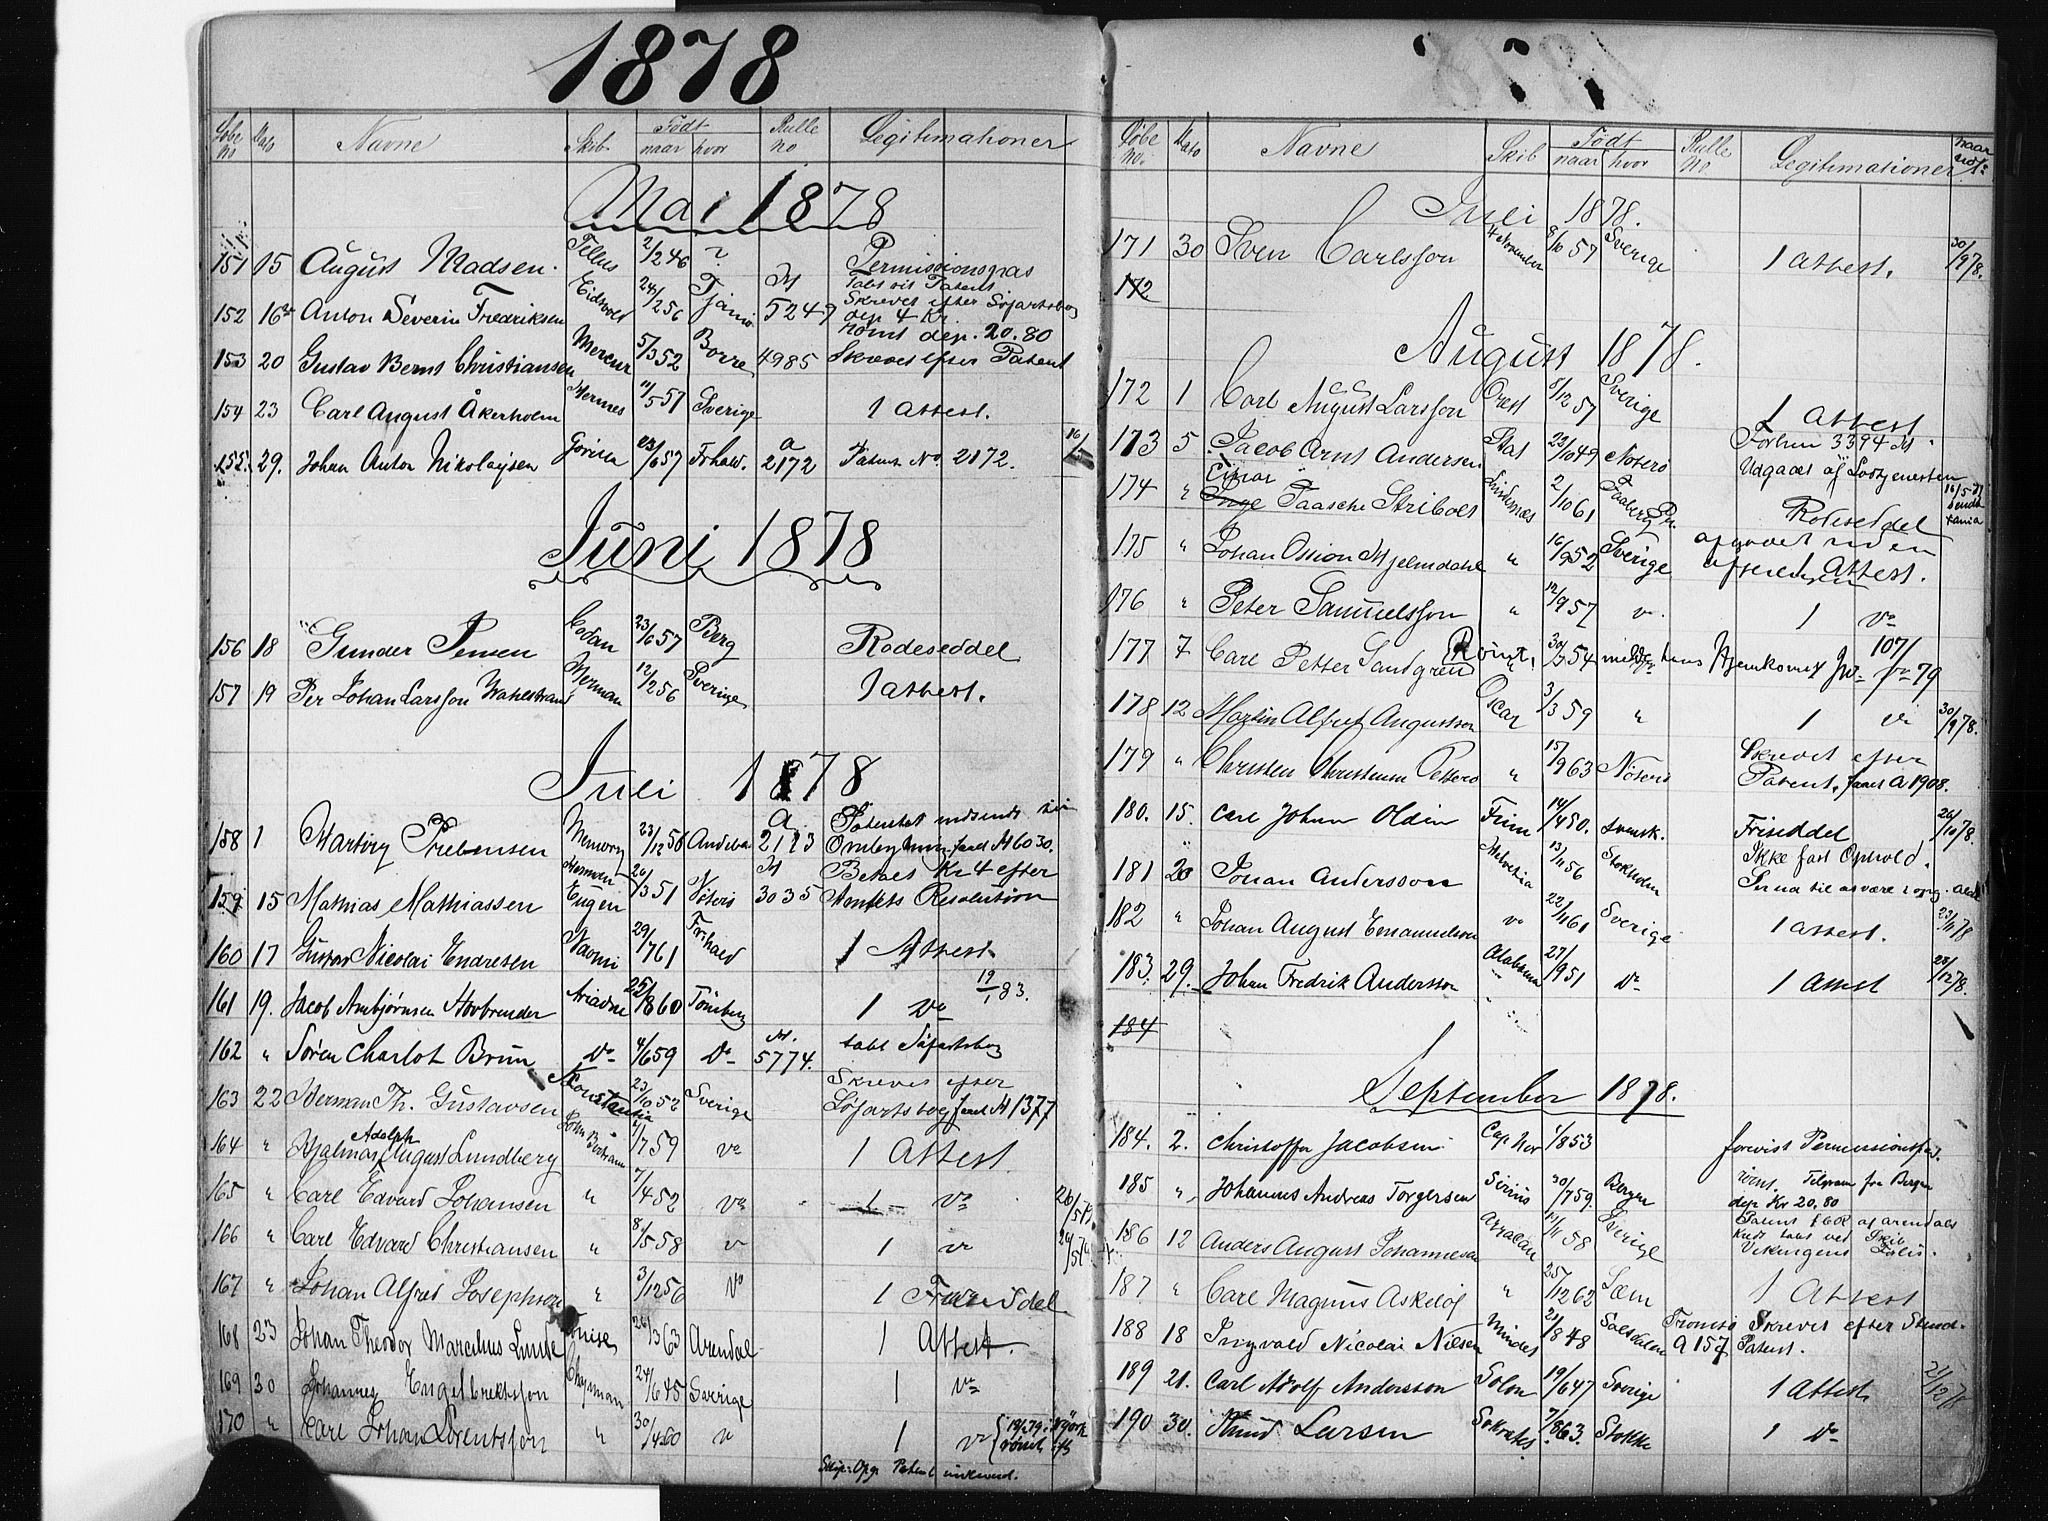 1878
Løbe No Dato Navne Skib Født naar hvor Rulle no Legitimationer
Mai 1878
151 15 August Madsen. Tellus 2/2 46 ? Permissionspas
Tabt sit Patent
152 16 Anton Severin Fredriksen Eidsvold 24/2 56 Tjømø 5247 Skrevet efter Søfartsbog
dep. 4 Kr.
rømt dep. 20.80
153 20 Gustav Bernt Christiansen Mercur 5/3 52 Borre 4985 Skrevet efter Patent
154 23 Carl August Åkerholm Hermes 11/5 57 Sverige 1 Attest.
155. 29. Johan Anton Nikolaysen 23/6 57 Frhald. a 2172 Patent No. 2172.
Juni 1878
156 18 Gunder Jensen Codan 23/6 57 Berg Rodeseddel
157 19 Per Johan Larsson Wahlstrand Herman 12/2 56 Sverige 1 Attest.
Juli 1878
158 1 Hartvig Prebensen Memory 23/12 56 Andebu a. 2123 Patentet indsendt til
Ombytning, faaet M 6030.
159 15 Mathias Mathiassen Eugen 20/3 51 Nøterø M 3035 Betalt Kr 4 efter
Amtets Resolution
160 17 Gustav Nicolai Endresen Naomi 29/7 61 Frhald 1 Attest
161 19. Jacob Ambjørnsen Hovbrender Ariadne 25/8 60 Tønsberg 1 do 19/1 83.
162 " Søren Charlot Bruun do 4/6 59 do M. 5774. tabt Søfartsbog
163 22 Herman Th. Gustavsen Konstantia 23/10 52 Sverige Skrevet efter
Søfartsbog faaet M 1377
164 " Hjalmar Adolph August Lundberg John Bertram /7 59 do 1 Attest.
165 " Carl Edvard Johansen " 7/4 52 do 1 do
166 " Carl Edvard Christiansen " 8/5 58 do 1 do
167 " Johan Alfred Josephsen " 3/12 56 do 1
168 23 Johan Theodor Marcelius Lunde Louise 26/3 63 Arendal 1 Attest.
169 30 Johannes Engelbrektsson Chapman 24/6 45 Sverige 1 do
170 " Carl Johan Lorentsson " 30/4 60 do 1 do 19/2 79. N York rømt
Skip. Opg. Patent
Løbe No. Dato Navne Skib Født naar hvor Rulle No. Legitimationer naar
Juli 1878.
171 30 Sven Carlsson 4 November 8/10 57 Sverige 1 Attest. 30/9 78.
172
August 1878.
172 1 Carl August Larsson Orest 5/12 57 Sverige 1 Attest
173 5 Jacob Arnt Andersen Stat 23/10 49 Nøterø Forhen 3394 M.
Udgaaet af Lodstjenesten
174 " Einar Inge Faasche Striboldt Lindesnæs 2/10 61 Faaberg Pr. Rodeseddel
175 " Johan Ossion Hjelmdahl " 16/9 52 Sverige Attest.
176 " Peter Samuelsson " 12/9 57 do 1 do
177 7 Carl Petter Sandgren Rømt, 30/7 54 meldt hans Hjemkomst 107/79
178 12 Martin Alfred Augustson Oscar 3/3 59 " 1 do 30/9 78.
179 " Christen Christensen " 15/9 63 Nøterø Skrevet efter
Patent, faaet A 1908.
180. 15. Carl Johan Oldin Finn 14/4 50. svensk. Friseddel 26/10 78.
181 20 Johan Andersson Helvetia 13/1 56 Stokholm Ikke fast Ophold.
182 " Johan August Emanuelson do 22/11 61 Sverige 1 Attest. 23/11 78
183. 29. Johan Fredrik Andersson Alabama 27/9 51 do 1 Attest 28/12 78.
184
September 1878.
184. 2. Christoffer Jacobsen Cap Nor 1/8 53 forevist Permissionspas.
185 " Johannes Andreas Torgersen Sirius 30/7 59. Bergen rømt. Telegram fra Bergen
dep Kr 20.80
186 12 Anders August Johannesen Arracan 14/11 58 Sverige Patent af Arendals
Kreds tabt ved Skib
Vikingens Forlis.
187 " Carl Magnus Askelöf " 25/12 62 Sæm 1 Attest
188 18 Ingvald Nicolai Nilsen Mindet 21/8 48 Saltdalen Tromsø A 157 Skrevet efter
Patent.
189 21. Carl Adolf Andersson Solon 19/6 47 Sverige 1 Attest 21/12 78
190 30. Knud Larsen Sokrates 7/8 63. Stokke 1 do